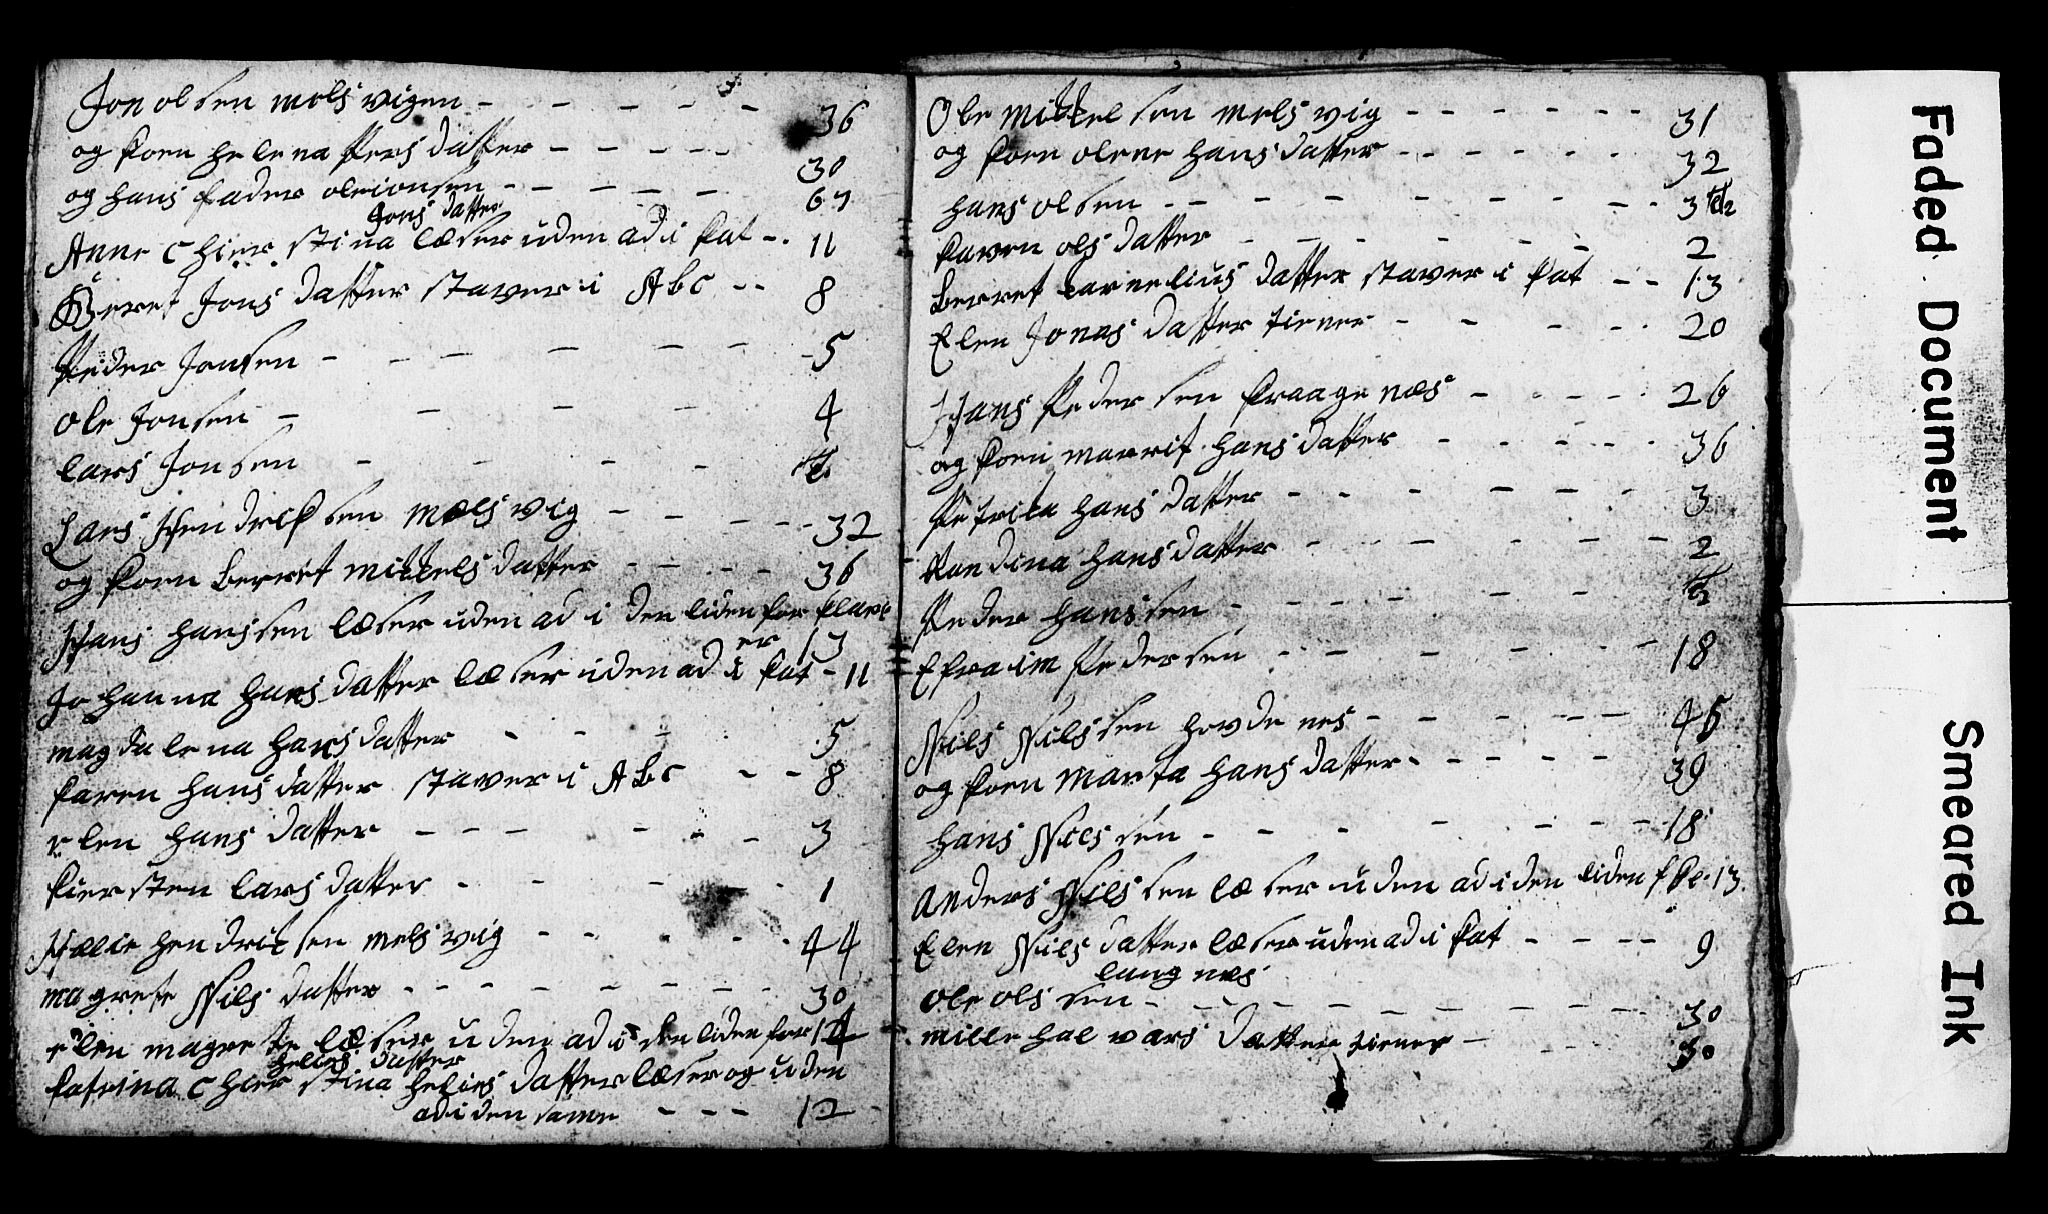 Jon olsen mels vigen - - - - - 36
og koen helena Pers datter - - - - - 30
og hans fader ole ionsen - - - - - 67
Jons datter
Anne Chierstina læser uden ad i Kat - . 11
Beret Jons datter staver i Abc - - 8
Peder Jonsen - - - - - - 5
Ole Jonsen - - - - 4
lars Jonsen - - - - ½
Lars Hendriksen mæls vig - - - - - 32
og koen Berret mikkels datter - - - - 36
Hans hanssen læser uden ad i den liden for klare
er 13
Johanna hans datter læser uden ad i Kat - 11
magdalena hans datter - - - 5
karen hans datter staver i ABC - - 8
elen hans datter - - - - - - 3
kiersten lars datter - - - - 1
Hælie hendriksen mels vig - - - - - 44
magrete Nils datter - - - - - - - 30
elen magrete læser uden ad i den liden for 14
helies datter
Katrina Chierstina helies datter læser og uden
ad i den same - - - 12
Ole Mikkelsen mels vig - - - - - - 31
og koen olene hans datter - - - - - - 32
hans olsen - - - - - - - - 3 ½
karen ols datter - - - - - 2
Berret karnelius datter staver i Kat - - 13
Elen Jonas datter tiener - - - - 20
Hans Pedersen kraage næs - - - - 26
og koen marrit hans datter - - - - - 36
Petrika hans datter - - - - - - 3
Randina hans datter - - - - - - 2
Peder hanssen - - - - - - ½
Efraim Pedersen - - - - - - 18
Niels Nilssen hovde nes - - - - - 45
og koen Marta hans datter - - - - - 39
hans Nilssen - - - - - - - 18
anders Nilssen læser uden ad i den liden f kl. 13
Elen Nils datter læser uden ad i Kat - - - - 9
lang næs
ole olssen - - - - - - - - 30
mille halvars datter tiener - - 30
Faded Document
Smeared Ink